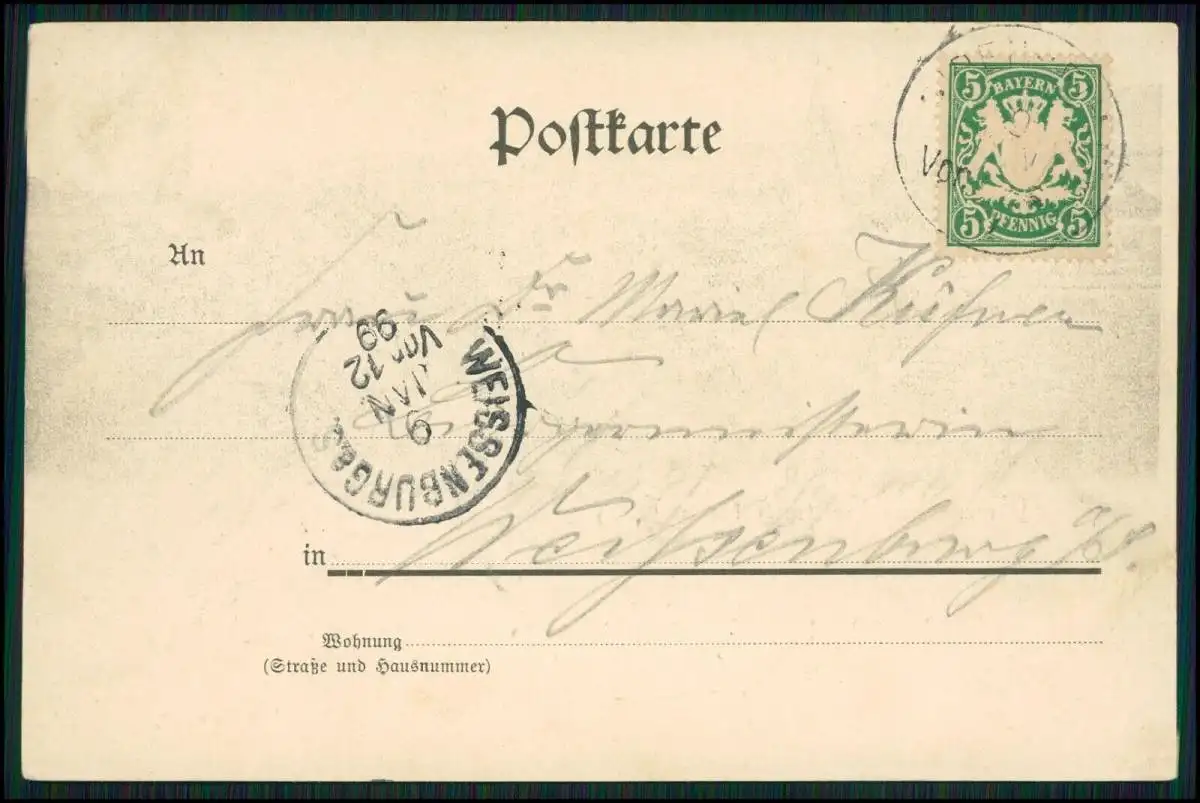 Postkarte
5 BAYERN 5
5 PFENNIG 5
Vor
An
Frau Dr Marie Küfner
99
Vor. 12
JAN
9
WEISSENBURG a.S
in Weißenburg a/S.
Wohnung
(Straße und Hausnummer)